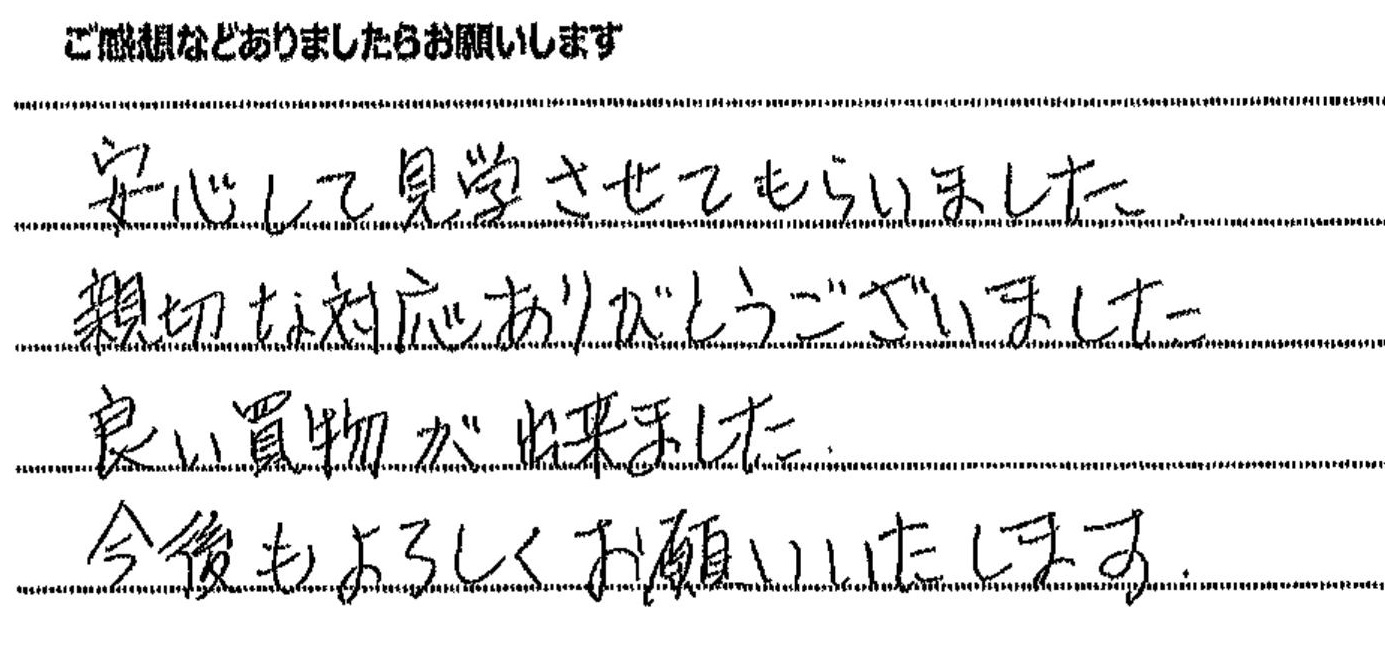 ご感想などありましたらお願いします
安心して見学させてもらいました.
親切な対応ありがとうございました
良い買物が出来ました.
今後もよろしくお願いいたします.